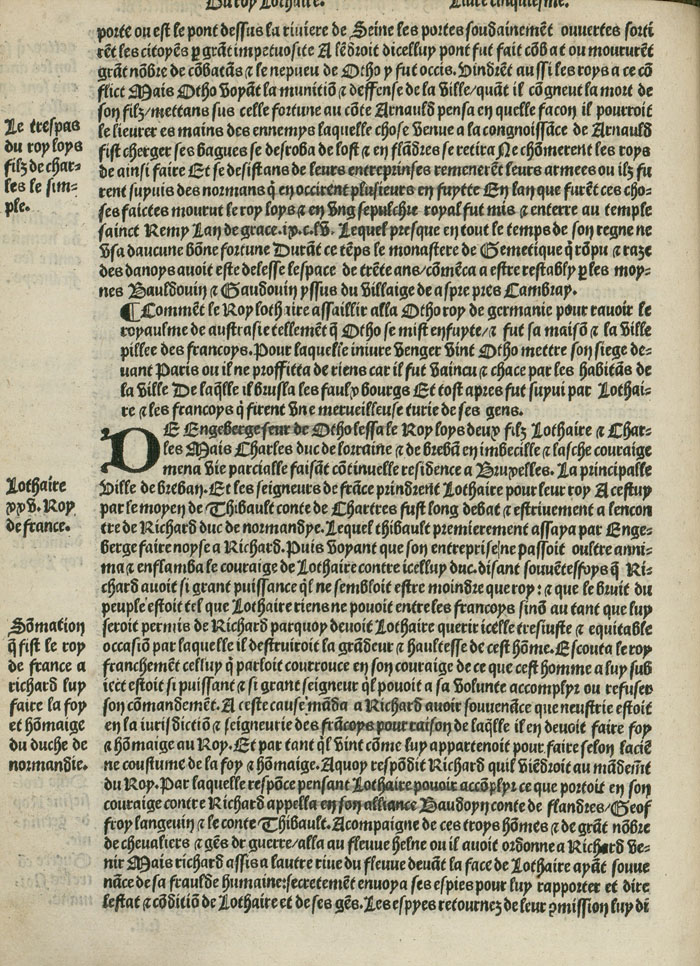 Du roy Lothaire. Liure cinquiesme.
porte ou est le pont dessus la riuiere de Seine les portes soudainemēt ouuertes sorti
rēt les citoyēs p̱ grāt impetuosite A lēdroit dicelluy pont fut fait cōbat ou moururēt
grāt nōbre de cōbatās ⁊ le nepueu de Otho y fut occis. Vindrēt aussi les roys a ce cō
flict Mais Otho voyāt la munitiō ⁊ deffense de la ville/quāt il cōgneut la mort de
son filz/mettans sus celle fortune au cōte Arnauld pensa en quelle facon il pourroit
le lieurer es mains des ennemys laquelle chose venue a la congnoissāce de Arnauld
fist cherger ses bagues se desroba de lost ⁊ en flādres se retira Ne chōmerent les roys
de ainsi faire Et se desistans de leurs entreprinses remenerēt leurs armees ou ilz fu
rent suyuis des normans q̄ en occirent plusieurs en fuytte En lan que furēt ces cho⸗
ses faictes mourut le roy loys ⁊ en vng sepulchre royal fut mis ⁊ enterre au temple
sainct Remy Lan de grace.ix.c.lv. Lequel presque en tout le temps de son regne ne
vsa daucune bōne fortune Durāt ce tēps le monastere de Gemetique q̄ rōpu ⁊ raze
des danoys auoit este delesse lespace de trēte ans/cōmēca a estre restably p̱ les moy⸗
nes Bauldouin ⁊ Gaudouin yssus du villaige de aspre pres Cambray.
¶ Commēt le Roy lothaire assaillir alla Otho roy de germanie pour rauoir le
royaulme de austrasie tellemēt q̄ Otho se mist enfuyte/⁊ fut sa maisō ⁊ la ville
pillee des francoys. Pour laquelle iniure venger vint Otho mettre son siege de⸗
uant Paris ou il ne proffitta de riens car il fut vaincu ⁊ chace par les habitās de
la ville De laq̄lle il brusla les faulx bourgs Et tost apres fut suyui par Lothai⸗
re ⁊ les francoys q̄ firent vne merueilleuse turie de ses gens.
DE Engeberge seur de Otho lessa le Roy loys deux filz Lothaire ⁊ Char⸗
les Mais Charles duc de lorraine ⁊ de brebā en imbecille ⁊ lasche couraige
mena vie parcialle faisāt cōtinuelle residence a Bruxelles. La principalle
ville de breban. Et les seigneurs de frāce prindrēt Lothaire pour leur roy A cestuy
par le moyen de Thibault conte de Chartres fust long debat ⁊ estriuement a lencon
tre de Richard duc de normandye. Lequel thibault premierement assaya par Enge⸗
berge faire noyse a Richard. Puis voyant que son entreprise ne passoit oultre anni⸗
ma ⁊ enflamba le couraige de Lothaire contre icelluy duc. disant souuētesfoys q̄ Ri⸗
chard auoit si grant puissance q̄l ne sembloit estre moindre que roy: ⁊ que le bruit du
peuple estoit tel que Lothaire riens ne pouoit entre les francoys sinō au tant que luy
seroit permis de Richard parquoy deuoit Lothaire querir icelle tresiuste ⁊ equitable
occasiō par laquelle il destruiroit la grādeur ⁊ haultesse de cest hōme. Escouta le roy
franchemēt celluy q̄ parloit courrouce en son couraige de ce que cest homme a luy sub
iect estoit si puissant ⁊ si grant seigneur q̄l pouoit a sa volunte accomplyr ou refuser
son cōmandemēt. A ceste cause māda a Richard auoir souuenāce que neustrie estoit
en la iurisdictiō ⁊ seigneurie des frācoys pour raison de laq̄lle il en deuoit faire foy
⁊ hōmaige au Roy. Et par tant q̄l vint cōme luy appartenoit pour faire selon laciē
ne coustume de la foy ⁊ hōmaige. Aquoy respōdit Richard quil viēdroit au mādemēt
du Roy. Par laquelle respōce pensant Lothaire pouoir accōplyr ce que portoit en son
couraige contre Richard appella en son alliance Baudoyn conte de flandres/Geof
froy langeuin ⁊ le conte Thibault. Acompaigne de ces troys hōmes ⁊ de grāt nōbre
de cheualiers ⁊ gēs dr guerre/alla au fleuue helne ou il auoit ordonne a Richard ve⸗
nir Mais richard assis a lautre riue du fleuue deuāt la face de Lothaire ayāt souue
nāce de sa fraulde humaine:secretement enuoya ses espies pour luy rapporter et dire
lestat ⁊ cōditiō de Lothaire et de ses gēs. Les espyes retournez de leur ꝓmission luy di
Le trespas
du roy loys
filz de char⸗
les le sim⸗
ple.
Lothaire
xxv. Roy
de france.
Sōmation
q̄ fist le roy
de france a
richard luy
faire la foy
et hōmaige
du duche de
normandie.